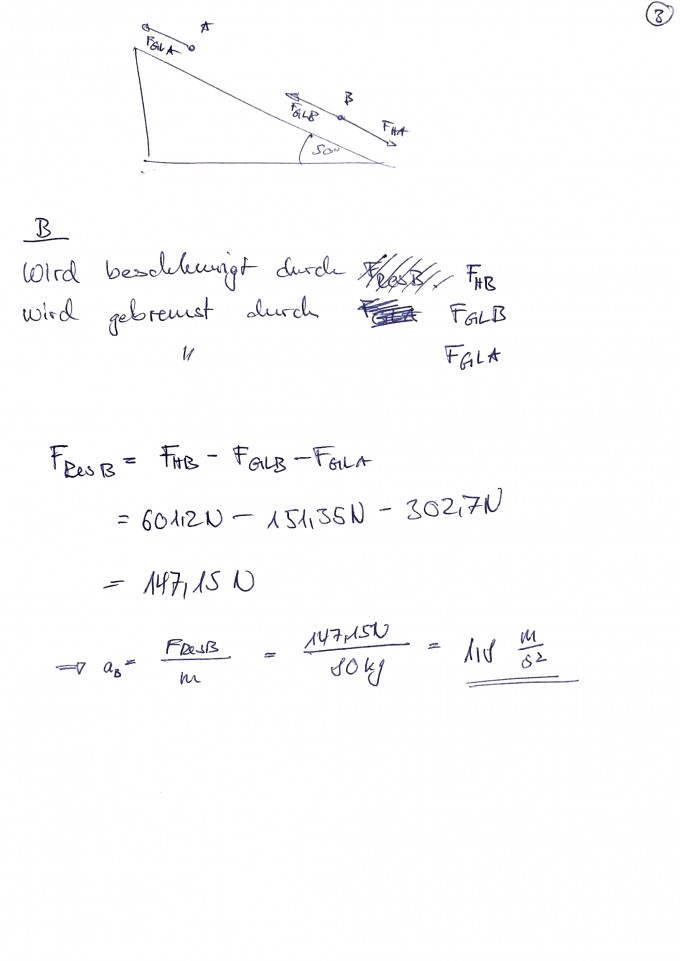 3
A
F_GLA
B
F_GLB
F_HA
50°
B
Wird beschleunigt durch F_ResB F_HB
wird gebremst durch F_GLA F_GLB
" F_GLA
F_ResB = F_HB - F_GLB - F_GLA
= 601,2N - 151,35N - 302,7N
= 147,15 N
⇒ a_B = F_ResB / m = 147,15N / 80kg = 1,8 m/s²